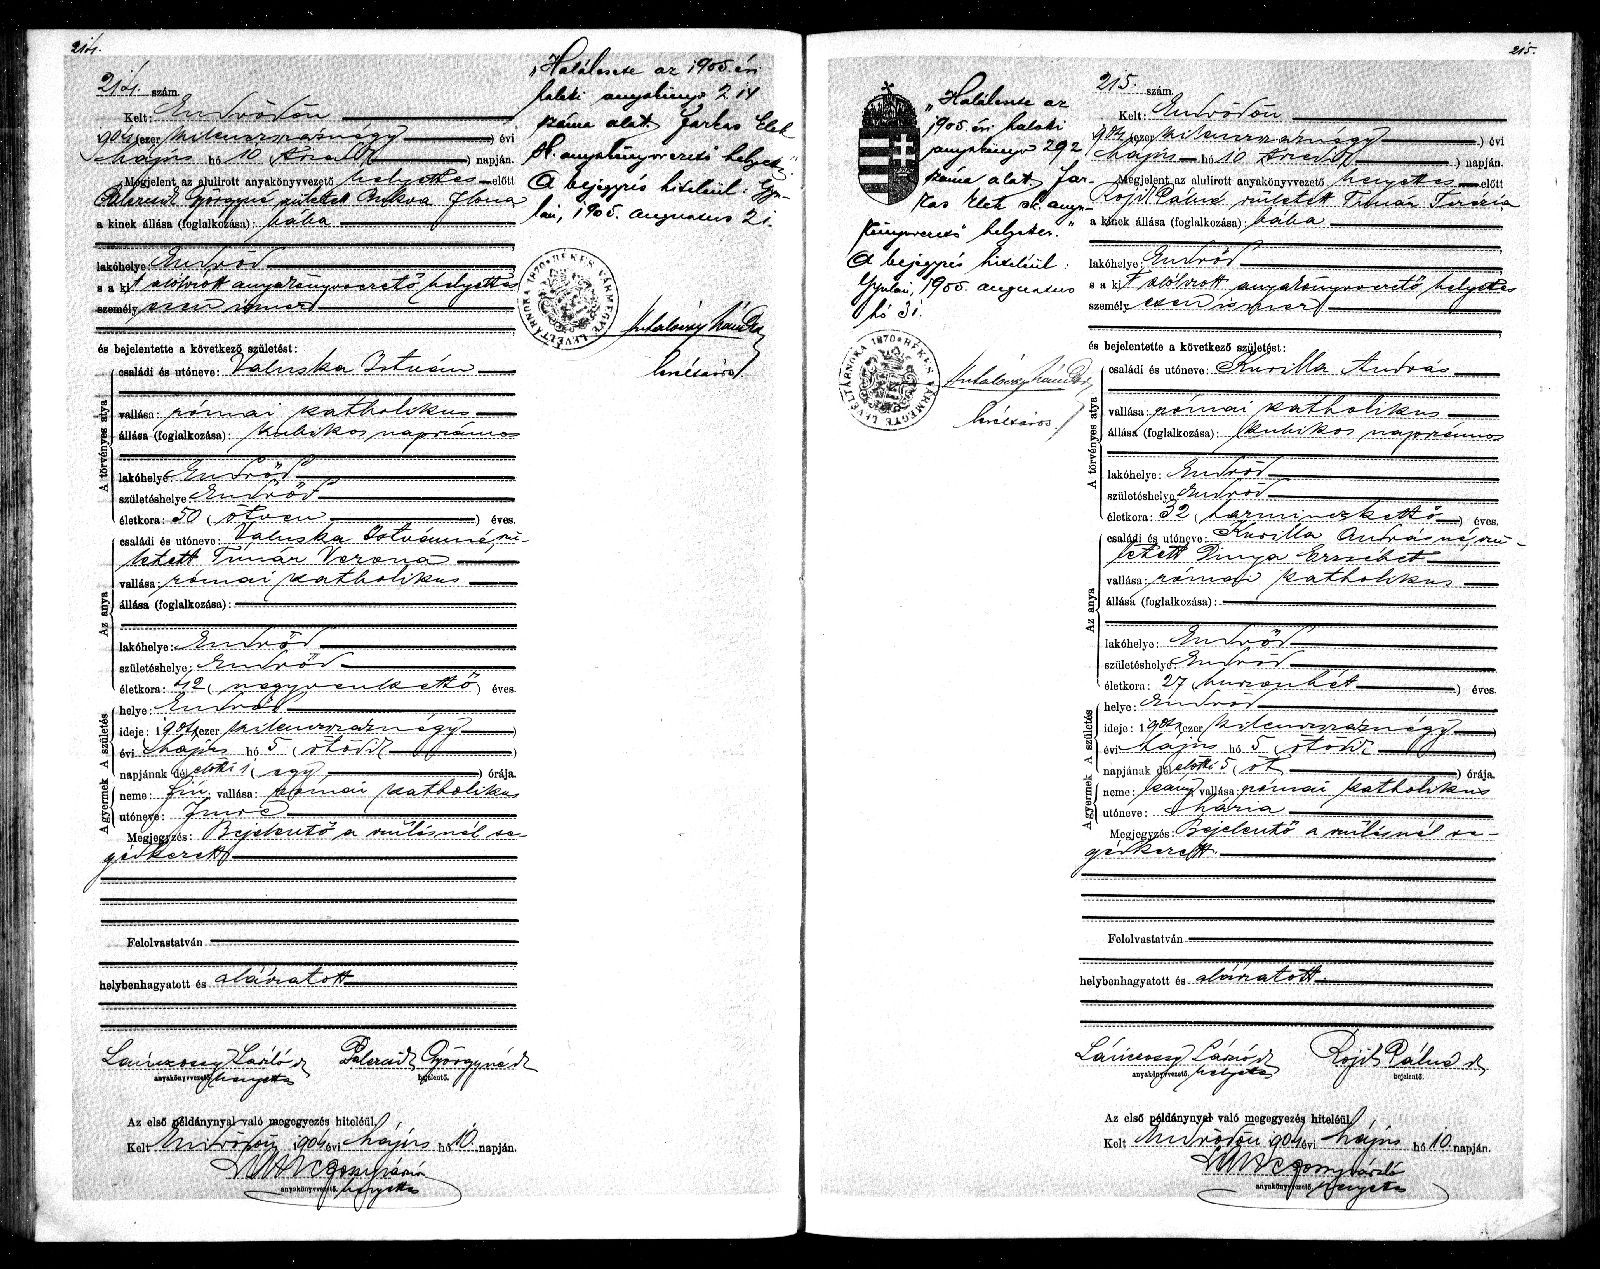 214.
214. szám.
Kelt: Endrődön
904 ezer kilenczszáznégy ) évi
május hó 10 tizedik ) napján.
Megjelent az alulirott anyakönyvvezető helyettes előtt
Györgyné született Ilona
a kinek állása (foglalkozása): bába
lakóhelye: Endrőd
s a kit alólirott anyakönyvvezető helyettes
személyesen ismer
és bejelentette a következő születést:
A törvényes atya
családi és utóneve: Valuska István
vallása: római katholikus
állása (foglalkozása): kubikos napszámos
lakóhelye: Endrőd
születéshelye: Endrőd
életkora: 50 ( ötven ) éves.
Az anya
családi és utóneve: Valuska Istvánné, szü-
letett Timár Verona
vallása: római katholikus
állása (foglalkozása):
lakóhelye: Endrőd
születéshelye: Endrőd
életkora: 42 ( negyvenkettő ) éves.
A születés
helye: Endrőd
ideje: 1904 ezer kilenczszáznégy
évi május hó 5 ( ötödik )
napjának dél előtti 1 ( egy ) órája.
A gyermek
neme: fiú vallása: római katholikus
utóneve: Imre
Megjegyzés: Bejelentő a szülésnél se-
gédkezett
Felolvastatván
helybenhagyatott és aláiratott
Lánczossy László sk helyettes
anyakönyvvezető.
Györgyné sk
bejelentő.
Az első példánynyal való megegyezés hiteléül.
Kelt Endrődön 1904 évi május hó 10 napján.
anyakönyvvezető. helyettes
„Halálesete az 1905. évi
halotti anyakönyv 214
száma alatt. Farkas Elek
sk. anyakönyvvezető helyettes.”
A bejegyzés hiteléül: Gyu-
lán, 1905. augusztus 21.
BÉKES VÁRMEGYE LEVÉLTÁRNOKA 1870
levéltáros
215.
„Halálesete az
1905. évi halotti
anyakönyv 292
száma alatt. Far-
kas Elek sk. anya-
könyvvezető helyettes.”
A bejegyzés hiteléül:
Gyulán, 1905. augusztus
hó 31.
BÉKES VÁRMEGYE LEVÉLTÁRNOKA 1870
levéltáros
215. szám.
Kelt: Endrődön
904 ezer kilenczszáznégy ) évi
május hó 10 tizedik ) napján.
Megjelent az alulirott anyakönyvvezető helyettes előtt
Rojik Pálné született Timár Terézia
a kinek állása (foglalkozása): bába
lakóhelye: Endrőd
s a kit alólirott anyakönyvvezető helyettes
személyesen ismer
és bejelentette a következő születést:
A törvényes atya
családi és utóneve: Kurilla András
vallása: római katholikus
állása (foglalkozása): kubikos napszámos
lakóhelye: Endrőd
születéshelye: Endrőd
életkora: 32 ( harminczkettő ) éves.
Az anya
családi és utóneve: Kurilla Andrásné, szü-
letett Dinya Erzsébet
vallása: római katholikus
állása (foglalkozása):
lakóhelye: Endrőd
születéshelye: Endrőd
életkora: 27 ( huszonhét ) éves.
A születés
helye: Endrőd
ideje: 1904 ezer kilenczszáznégy
évi május hó 5 ( ötödik )
napjának dél előtti 5 ( öt ) órája.
A gyermek
neme: leány vallása: római katholikus
utóneve: Mária
Megjegyzés: Bejelentő a szülésnél se-
gédkezett.
Felolvastatván
helybenhagyatott és aláiratott
Lánczossy László sk helyettes
anyakönyvvezető.
Rojik Pálné sk
bejelentő.
Az első példánynyal való megegyezés hiteléül.
Kelt Endrődön 1904 évi május hó 10 napján.
anyakönyvvezető. helyettes